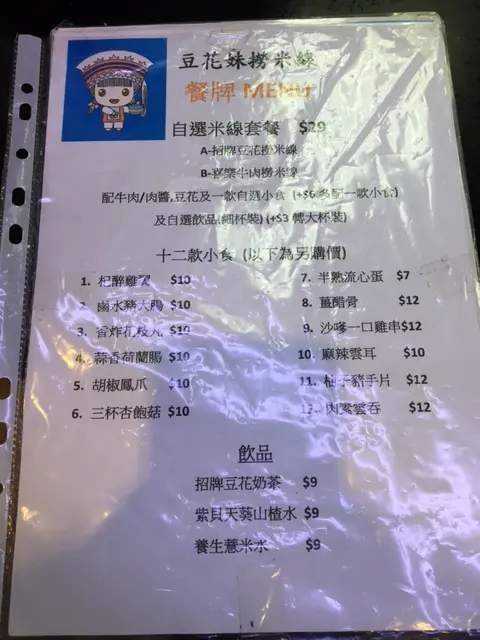 豆花妹撈米線
餐牌 MENU
自選米線套餐 $29
A-招牌豆花撈米線
B-喜樂牛肉撈米線
配牛肉/肉醬,豆花及一款自選小食 (+$6 多配一款小食)
及自選飲品(細杯裝) (+$3 轉大杯裝)
十二款小食 (以下為另購價)
1. 杞醉雞翼 $10
2. 鹵水豬大腸 $10
3. 香炸花枝丸 $10
4. 蒜香荷蘭腸 $10
5. 胡椒鳳爪 $10
6. 三杯杏飽菇 $10
7. 半熟流心蛋 $7
8. 薑醋骨 $12
9. 沙嗲一口雞串$12
10. 麻辣雲耳 $10
11. 柚子豬手片 $12
12. 肉素雲吞 $12
飲品
招牌豆花奶茶 $9
紫貝天葵山楂水 $9
養生薏米水 $9